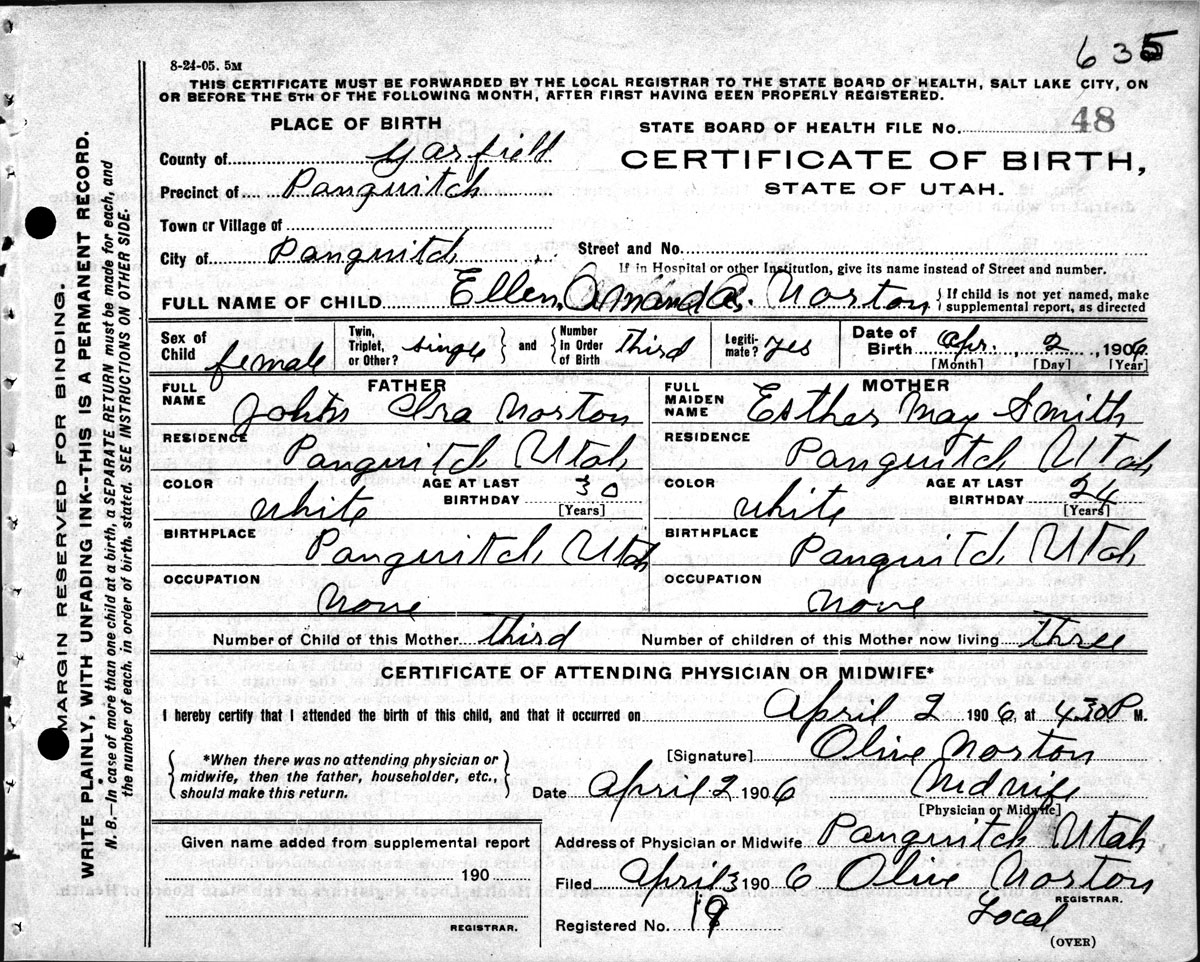 635
8-24-05. 5M
THIS CERTIFICATE MUST BE FORWARDED BY THE LOCAL REGISTRAR TO THE STATE BOARD OF HEALTH, SALT LAKE CITY, ON
OR BEFORE THE 5TH OF THE FOLLOWING MONTH, AFTER FIRST HAVING BEEN PROPERLY REGISTERED.
PLACE OF BIRTH
STATE BOARD OF HEALTH FILE No. 48
County of Garfield
CERTIFICATE OF BIRTH,
Precinct of Panguitch
STATE OF UTAH.
Town or Village of
City of Panguitch
Street and No.
If in Hospital or other Institution, give its name instead of Street and number.
FULL NAME OF CHILD Ellen Amanda Norton { If child is not yet named, make supplemental report, as directed
Sex of Child female
Twin, Triplet, or Other? single } and { Number in Order of Birth third
Legitimate? yes
Date of Birth Apr. 2, 1906
[Month] [Day] [Year]
FATHER
FULL NAME John Ira Norton
MOTHER
FULL MAIDEN NAME Esther May Smith
RESIDENCE Panguitch Utah
RESIDENCE Panguitch Utah
COLOR white AGE AT LAST BIRTHDAY 30 [Years]
COLOR white AGE AT LAST BIRTHDAY 24 [Years]
BIRTHPLACE Panguitch Utah
BIRTHPLACE Panguitch Utah
OCCUPATION None
OCCUPATION None
Number of Child of this Mother third
Number of children of this Mother now living three
CERTIFICATE OF ATTENDING PHYSICIAN OR MIDWIFE*
I hereby certify that I attended the birth of this child, and that it occurred on April 2 1906, at 430 P M.
*When there was no attending physician or
midwife, then the father, householder, etc.,
should make this return.
[Signature] Olive Norton
Date April 2 1906 Midwife
[Physician or Midwife]
Given name added from supplemental report
190
REGISTRAR.
Address of Physician or Midwife Panguitch Utah
Filed April 3 1906 Olive Norton
REGISTRAR.
Registered No. 19 Local
(OVER)
MARGIN RESERVED FOR BINDING.
WRITE PLAINLY, WITH UNFADING INK--THIS IS A PERMANENT RECORD.
N. B.—In case of more than one child at a birth, a SEPARATE RETURN must be made for each, and
the number of each, in order of birth, stated. SEE INSTRUCTIONS ON OTHER SIDE.